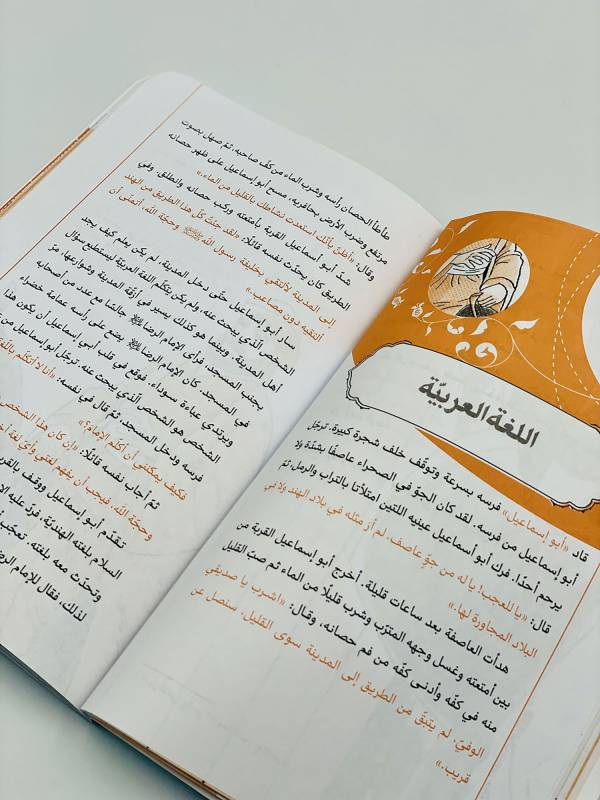 اللغة العربيّة
قاد «أبو إسماعيل» فرسه بسرعة وتوقّف خلف شجرة كبيرة. ترجّل
أبو إسماعيل من فرسه. لقد كان الجوّ في الصحراء عاصفًا بشدّة ولا
يرحم أحدًا. فرك أبو أسماعيل عينيه اللتين امتلأتا بالتراب والرمل، ثمّ
قال: «يا للعجب! يا له من جوّ عاصف، لم أرَ مثله في بلاد الهند ولا في
البلاد المجاورة لها.»
هدأت العاصفة بعد ساعات قليلة. أخرج أبو إسماعيل القربة من
بين أمتعته وغسل وجهه المترّب وشرب قليلًا من الماء ثم صبّ القليل
منه في كفّه وأدنى كفّه من فم حصانه، وقال: «اشرب يا صديقي
الوفيّ، لم يتبقَّ من الطريق إلى المدينة سوى القليل، سنصل عن
قريب.»
طأطأ الحصان رأسه وشرب الماء من كفّ صاحبه، ثمّ صهل بصوت
مرتفع وضرب الأرض بحافريه. مسح أبو إسماعيل على ظهر حصانه
وقال: «أظنّ بأنّك استعدت نشاطك بالقليل من الماء.»
شدّ أبو إسماعيل القربة بأمتعته وركب حصانه وانطلق. وفي
الطريق كان يحدّث نفسه قائلًا: «لقد جئتُ كلّ هذا الطريق من الهند
إلى المدينة لألتقي بخليفة رسول الله ﷺ وحجّة الله، أتمنّى أن
ألتقيه دون مصاعب.»
سار أبو إسماعيل حتّى دخل المدينة. لم يكن يعلم كيف يجد
الشخص الّذي يبحث عنه، ولم يكن يتكلّم اللغة العربيّة ليستطيع سؤال
أهل المدينة. وبينما هو كذلك يسير في أزقّة المدينة وشوارعها، مرّ
بجنب المسجد فرأى الإمام الرضا جالسًا مع عدد من أصحابه
في المسجد. كان الإمام الرضا يضع على رأسه عمامة خضراء
ويرتدي عباءة سوداء. فوقع في قلب أبي إسماعيل أن يكون هذا
الشخص هو الشخص الّذي يبحث عنه. ترجّل أبو إسماعيل من
فرسه ودخل المسجد، ثمّ قال في نفسه: «أنا لا أتكلّم
فكيف يمكنني أن أكلّم الإمام؟»
ثمّ أجاب نفسه قائلًا: «إن كان هذا الشخص
وحجّة الله، فيجب أن يفهم لغتي وأيّ لغة
تقدّم أبو إسماعيل ووقف
السلام بلغته الهنديّة؛ فردّ عليه
وتحدّث معه بلغته. تعجّب
لذلك، فقال للإمام